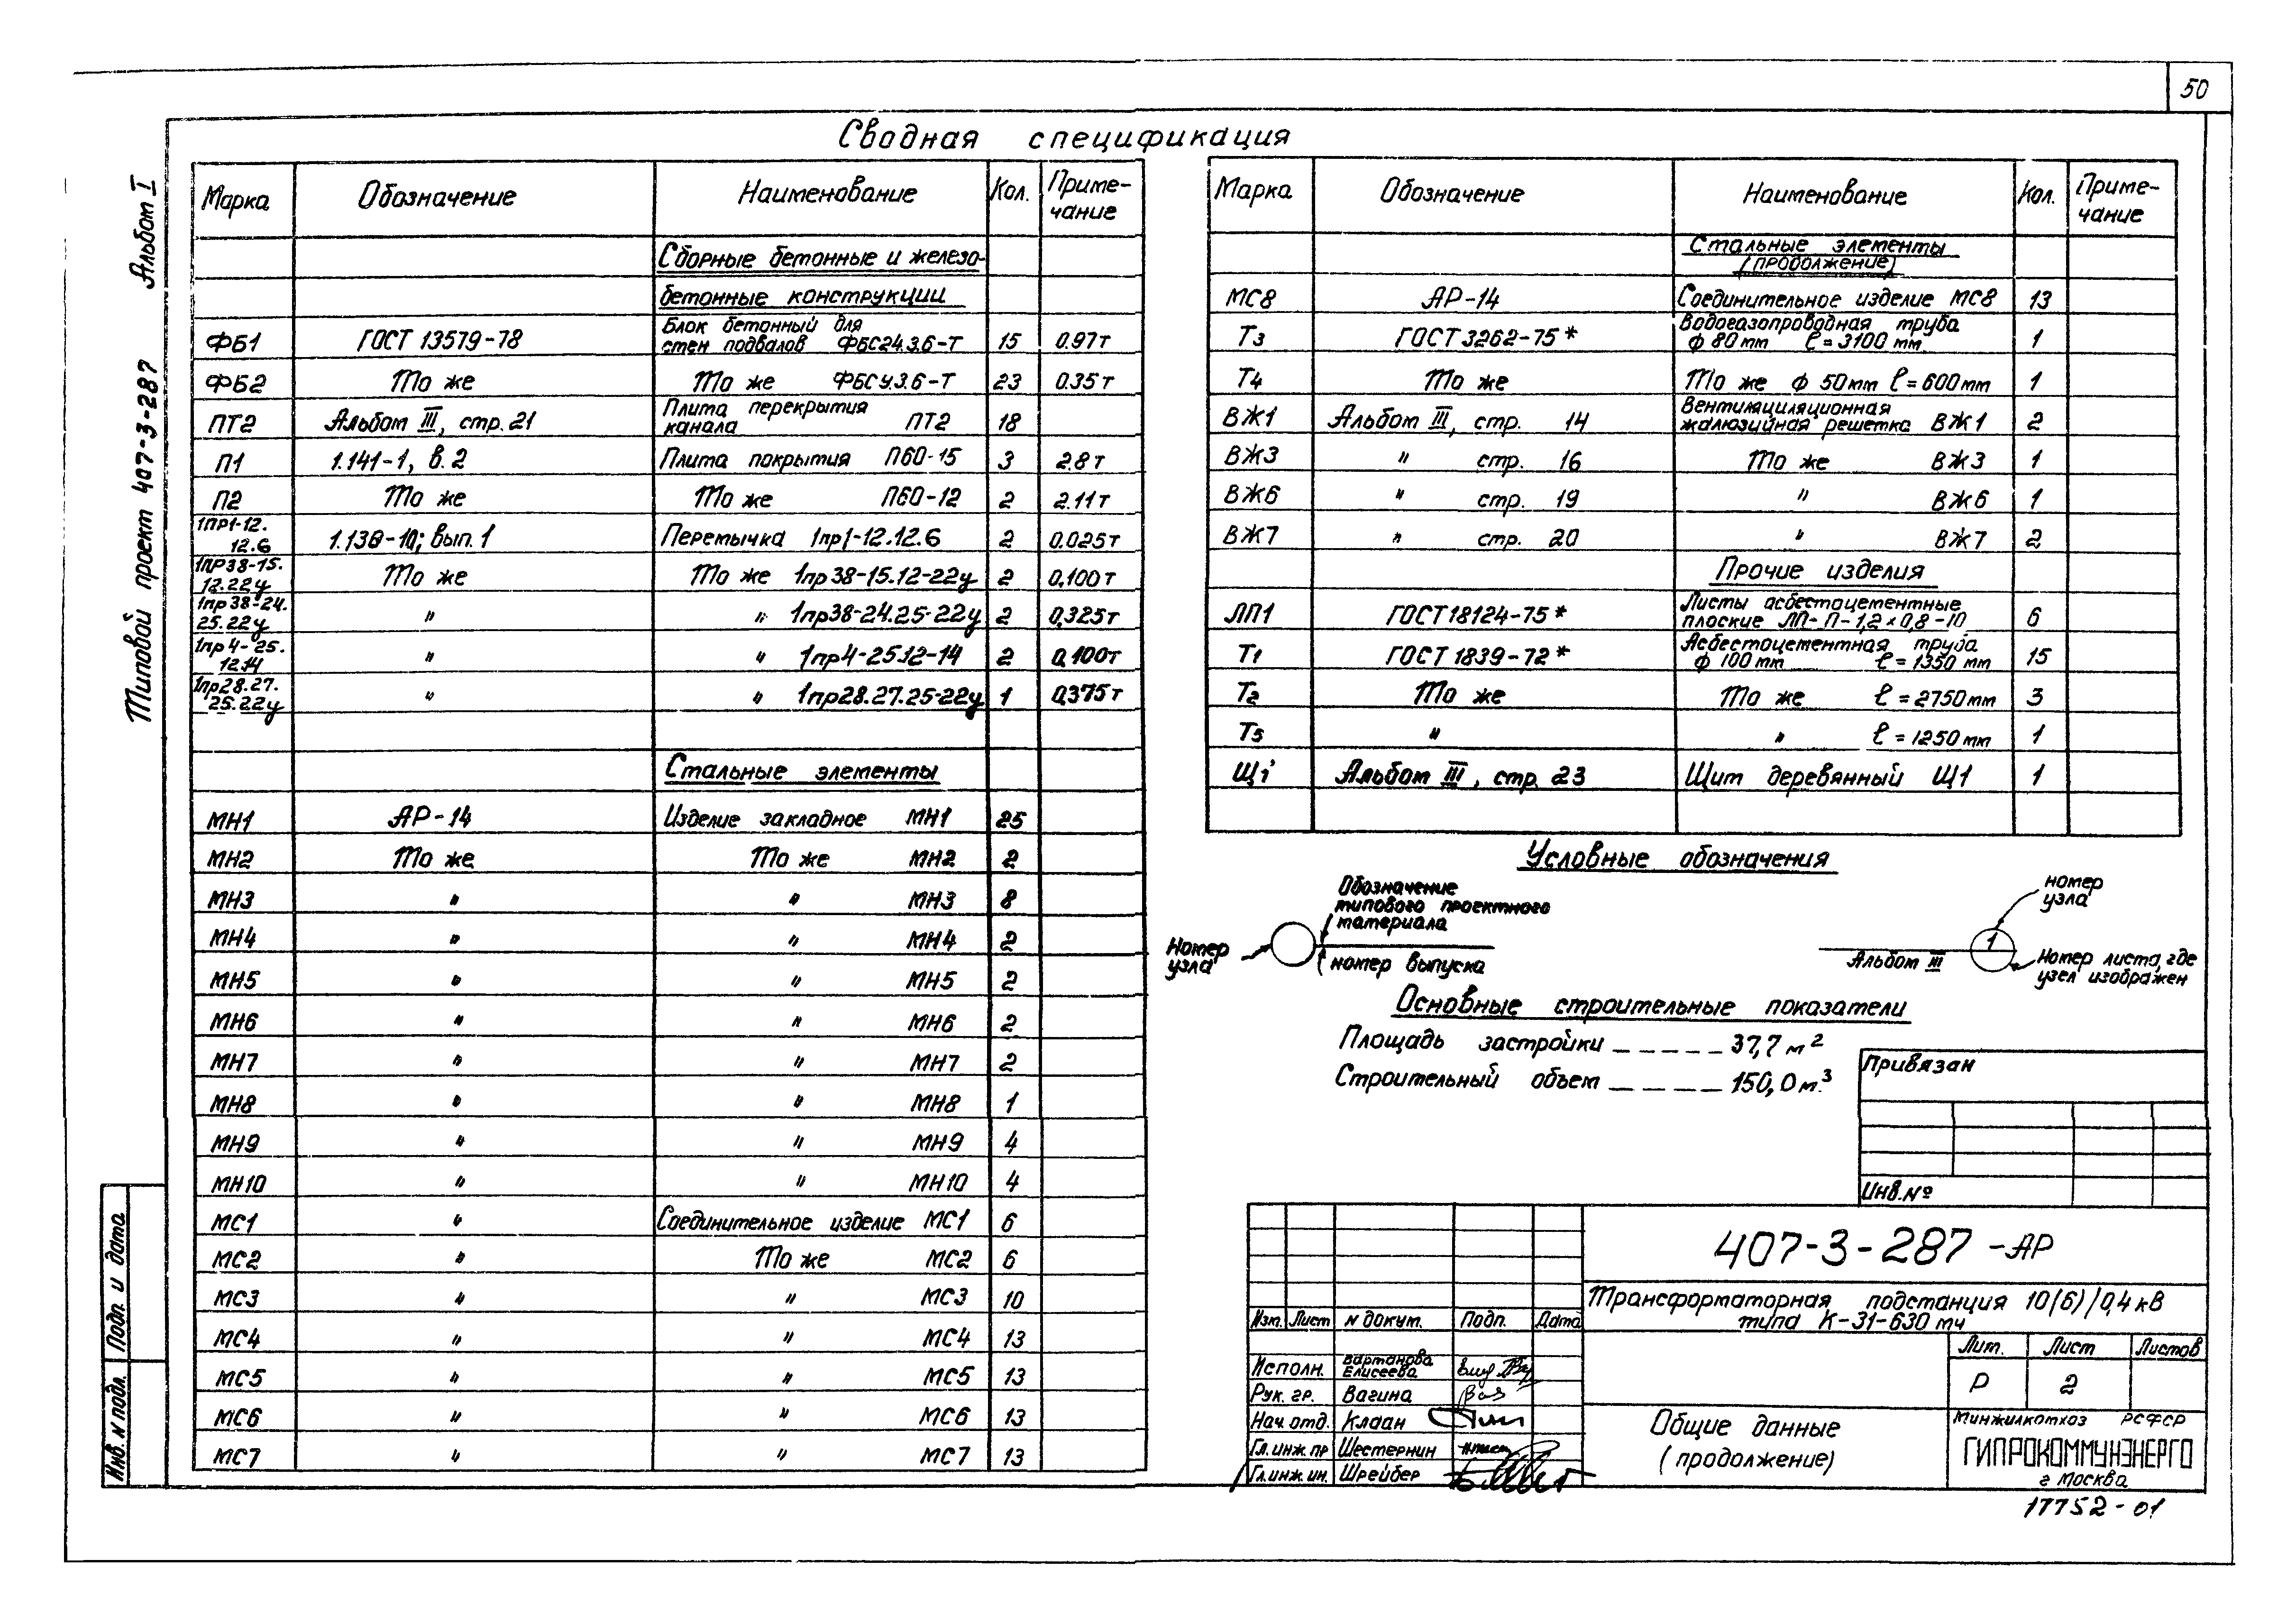 50
Сводная спецификация
Типовой проект 407-3-287 Альбом I
Марка Обозначение Наименование Кол. Приме-чание
Сборные бетонные и железо-
бетонные конструкции
ФБ1 ГОСТ 13579-78 Блок бетонный для стен подвалов ФБС24.3.6-Т 15 0.97т
ФБ2 То же То же ФБСУ.3.6-Т 23 0.35т
ПТ2 Альбом III, стр. 21 Плита перекрытия канала ПТ2 18
П1 1.141-1, в.2 Плита покрытия П60-15 3 2.8т
П2 То же То же П60-12 2 2.11т
1ПР1-12.12.6 1.138-10; вып.1 Перемычка 1пр1-12.12.6 2 0.025т
1ПР38-15.12.22у То же То же 1пр38-15.12-22у 2 0,100т
1пр38-24.25.22у " " 1пр38-24.25-22у 2 0,325т
1пр4-25.12.14 " " 1пр4-25.12-14 2 0,100т
1пр28.27.25.22у " " 1пр28.27.25-22у 1 0,375т
Стальные элементы
МН1 АР-14 Изделие закладное МН1 25
МН2 То же То же МН2 2
МН3 " " МН3 8
МН4 " " МН4 2
МН5 " " МН5 2
МН6 " " МН6 2
МН7 " " МН7 2
МН8 " " МН8 1
МН9 " " МН9 4
МН10 " " МН10 4
МС1 " Соединительное изделие МС1 6
МС2 " То же МС2 6
МС3 " " МС3 10
МС4 " " МС4 13
МС5 " " МС5 13
МС6 " " МС6 13
МС7 " " МС7 13
Марка Обозначение Наименование Кол. Приме-чание
Стальные элементы
(продолжение)
МС8 АР-14 Соединительное изделие МС8 13
Т3 ГОСТ 3262-75* Водогазопроводная труба ф 80мм ℓ=3100 мм 1
Т4 То же То же ф 50мм ℓ=600мм 1
ВЖ1 Альбом III, стр. 14 Вентиляциляционная жалюзийная решетка ВЖ1 2
ВЖ3 " стр. 16 То же ВЖ3 1
ВЖ6 " стр. 19 " ВЖ6 1
ВЖ7 " стр. 20 " ВЖ7 2
Прочие изделия
ЛП1 ГОСТ 18124-75* Листы асбестоцементные плоские ЛП-П-1,2×0,8-10 6
Т1 ГОСТ 1839-72* Асбестоцементная труба ф 100мм ℓ=1350 мм 15
Т2 То же То же ℓ=2750мм 3
Т5 " " ℓ=1250мм 1
Щ1 Альбом III, стр. 23 Щит деревянный Щ1 1
Условные обозначения
Обозначение
типового проектного
материала
Номер
узла
номер выпуска
номер
узла
1
Альбом III
Номер листа, где
узел изображен
Основные строительные показатели
Площадь застройки _ _ _ _ _ 37,7 м²
Строительный объем _ _ _ _ _ 150,0 м.³
Привязан
Инв.№
407-3-287-АР
Трансформаторная подстанция 10(6)/0,4кВ
типа К-31-630 мч
Изм. Лист N докум. Подп. Дата
Исполн. Вартанова Елисеева
Рук. гр. Вагина
Нач. отд. Клаан
Гл. инж. пр Шестернин
Гл. инж. ин. Шрейбер
Общие данные
(продолжение)
Лит. Лист Листов
Р 2
Минжилкомхоз РСФСР
ГИПРОКОММУНЭНЕРГО
г Москва
17752-01
Подп. и дата
Инв. N подл.